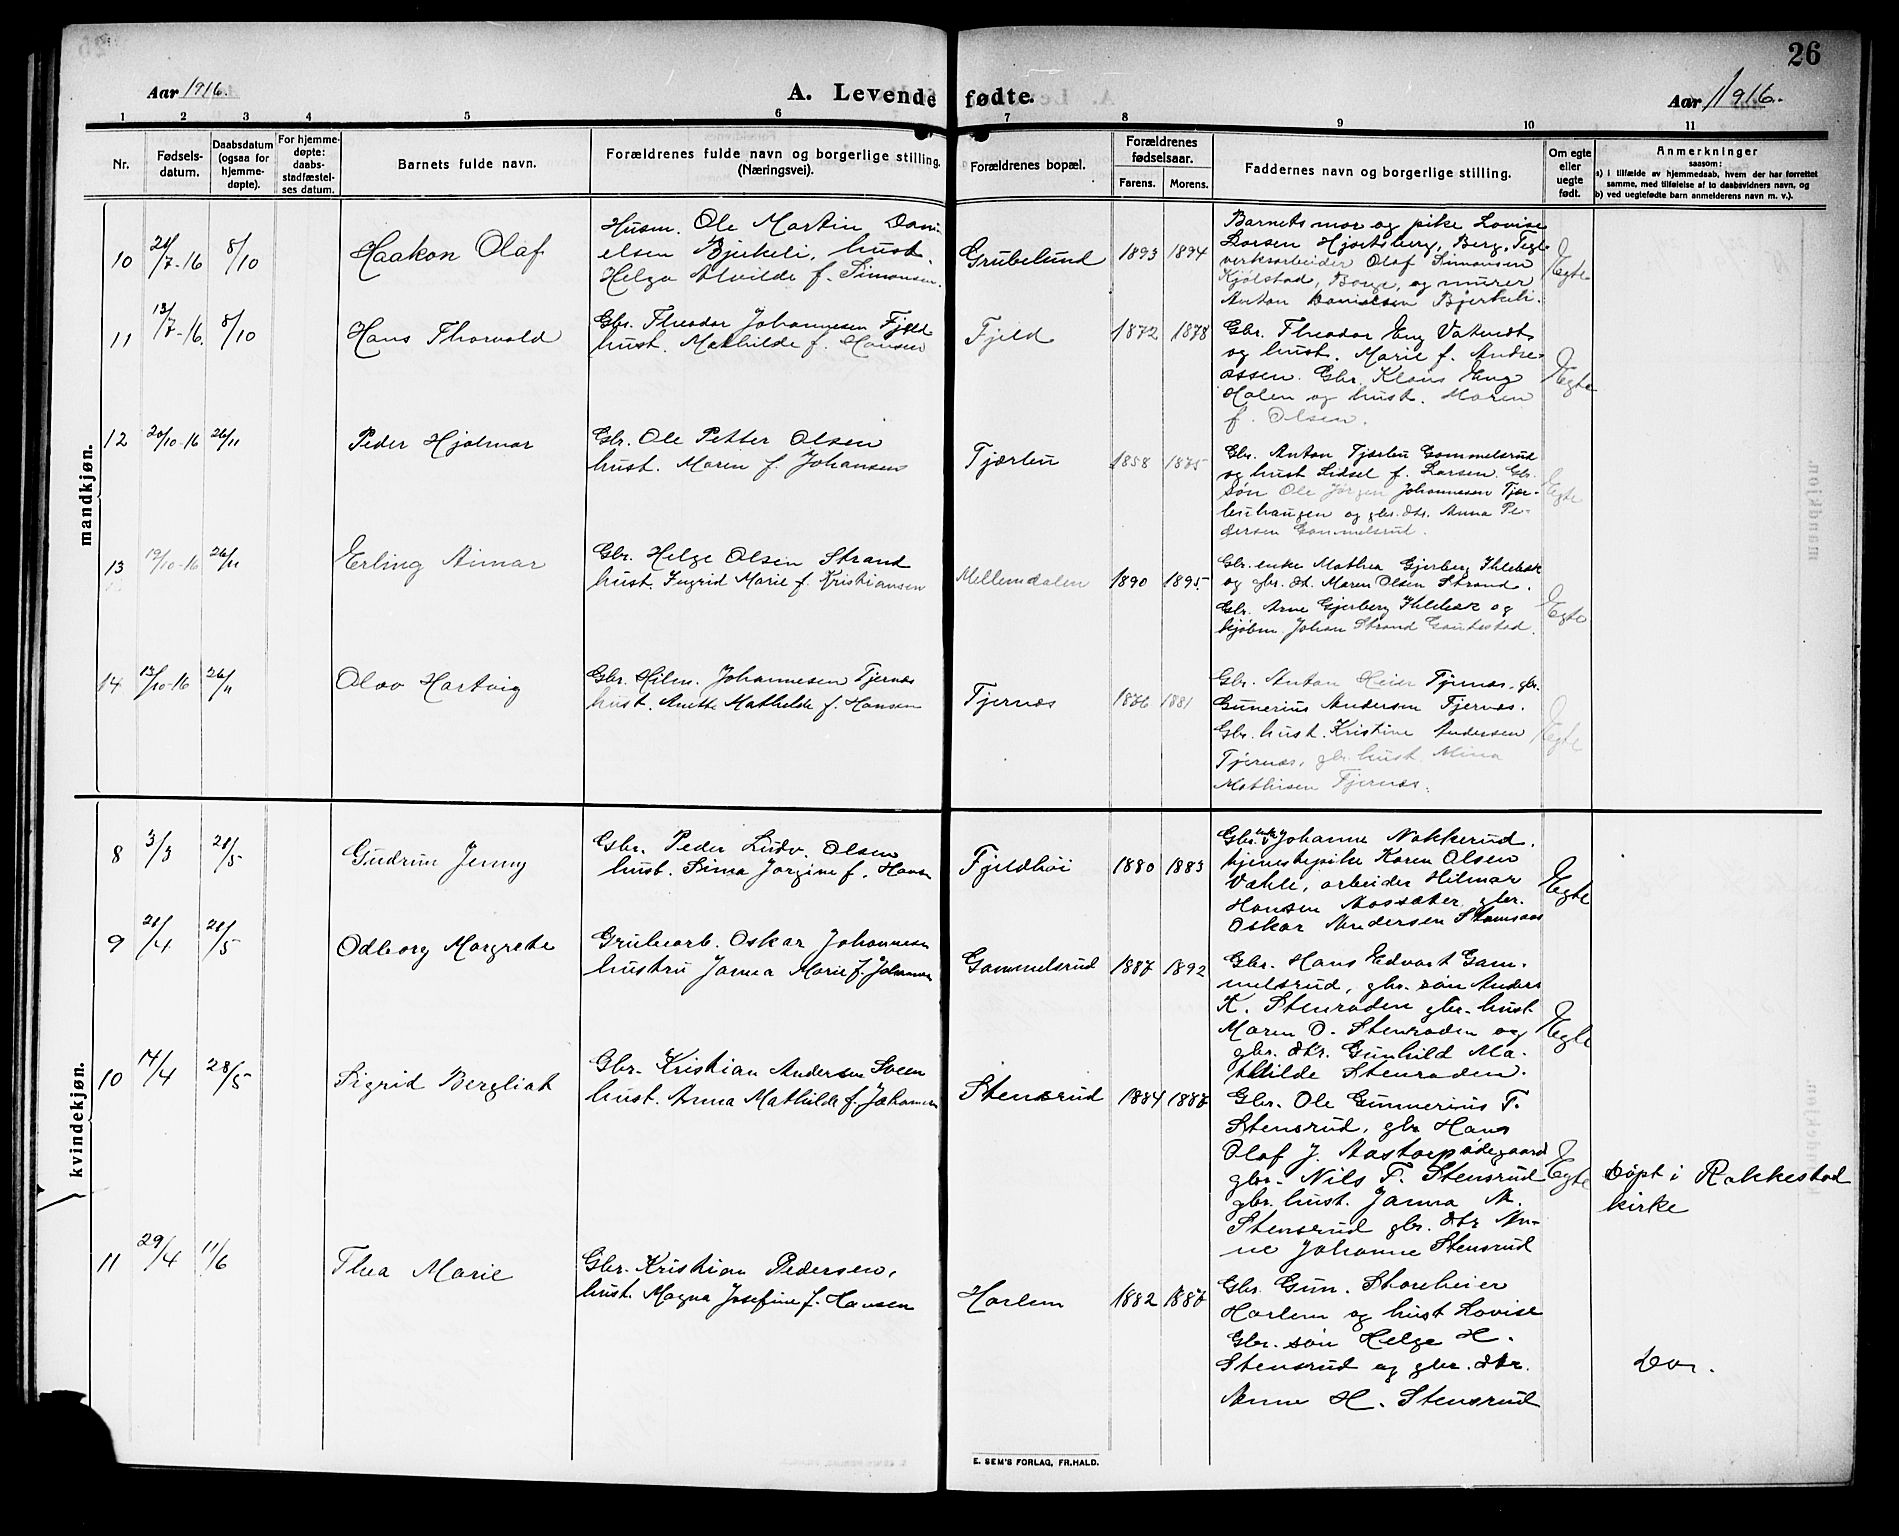 26
Aar 1916.
A. Levende fødte.
Aar 1916.
1 2 3 4 5 6 7 8 9 10 11
Nr.
Fødsels-
datum.
Daabsdatum
(ogsaa for
hjemme-
døpte).
For hjemme-
døpte:
daabs-
stadfæstel-
ses datum.
Barnets fulde navn.
Forældrenes fulde navn og borgerlige stilling.
(Næringsvei).
Forældrenes bopæl.
Forældrenes
fødselsaar.
Farens. Morens.
Faddernes navn og borgerlige stilling.
Om egte
eller
uegte
født.
Anmerkninger
saasom:
a) i tilfælde av hjemmedaab, hvem der har forrettet
samme, med tilføielse af to daabsvidners navn, og
b) ved uegtefødte barn anmelderens navn m. v.).
mandkjøn.
10
21/7-16
8/10
Haakon Olaf
Husm. Ole Martin Dani-
elsen Bjerkeli, hust.
Helga Alvilde f. Simonsen.
Grubelund
1893 1894
Barnets mor og pike Lovise
Larsen Hjortsberg, Berg, Tegl-
verksarbeider Olaf Simonsen
Kjølstad, Borge, og murer
Anton Danielsen Bjerkeli.
Egte
11
13/7-16.
8/10
Hans Thorvald
Gbr. Theodor Johannesen Fjeld
hust. Mathilde f. Hansen
Fjeld
1872 1878
Gbr. Theodor Eng Vatvedt
og hust. Marie f. Andre-
assen. Gbr. Klaus Eng
Holen og hust. Maren
f. Olsen.
Egte
12
20/10-16
26/11
Peder Hjalmar
Gbr. Ole Petter Olsen
hust. Maren f. Johansen
Tjærbu
1858 1875
Gbr. Anton Tjærbu Gammelsrud
og hust Lidsel f. Larsen. Gbr.
søn Ole Jørgen Johannesen Tjær-
buhaugen og gbr. dtr. Anna Pe-
dersen Gammelsrud.
Egte
13
19/10-16
26/11
Erling Aimar
Gbr. Helge Olsen Strand
hust. Ingrid Marie f. Kristiansen
Mellemdalen
1890 1895.
Gbr. enke Mathea Gjerberg Ihlebæk
og gbr. dt. Maren Olsen Strand.
Gbr. Arne Gjerberg Ihlebæk og
kjøbm. Johan Strand Gautestad.
Egte
14
13/10-16
26/11
Olav Hartvig
Gbr. Hilm. Johannesen Tjernæs
hust. Anette Mathilde f. Hansen
Tjernæs
1876 1881
Gbr. Anton Heier Tjernæs, gbr.
Gunerius Andersen Tjernæs.
Gbr. hust. Kristine Andersen
Tjernæs, gbr. hust. Mina
Mathisen Tjernæs.
Egte
kvindekjøn.
8
3/3
28/5
Gudrun Jenny
Gbr. Peder Ludv. Olsen
hust. Sina Jørgine f. Hansen
Fjeldhøi
1880 1883
Gbr. Johanne Nakkerud.
tjenestepike Karen Olsen
Vahle, arbeider Hilmar
Hansen Mossæter gbr.
Oskar Andersen Stomsaas
Egte
9
20/4
28/5
Odborg Margrete
Grubearb. Oskar Johannesen
hustru Janna Marie f. Johannesen
Gammelsrud
1887 1892
Gbr. Hans Edvart Gam-
melsrud, gbr. søn Anders
K. Stenroden gbr. hust
Maren O. Stenroden og
gbr. dtr. Gunhild Ma-
thilde Stenroden.
Egte
10
14/4
28/5
Sigrid Bergliot
Gbr. Kristian Andersen Sveen
hust. Anna Mathilde f. Johansen
Stensrud
1884 1887
Gbr. Ole Gunnerius T.
Stensrud, gbr Hans
Olaf J. Aastorpødegaard
gbr. Nils T. Stensrud
gbr. hust. Janna M.
Stensrud gbr. dtr An-
ne Johanne Stensrud
Egte
Døpt i Rakkestad
kirke
11
29/4
11/6
Thea Marie
Gbr. Kristian Pedersen,
hust. Magna Josefine f. Hansen
Harlem
1882 1887
Gbr. Gun. Storeheier
Harlem og hust Lovise
Gbr. søn Helge H.
Stensrud og gbr. dtr.
Anne H. Stensrud
Do.
E. SEM'S FORLAG, FR.HALD.